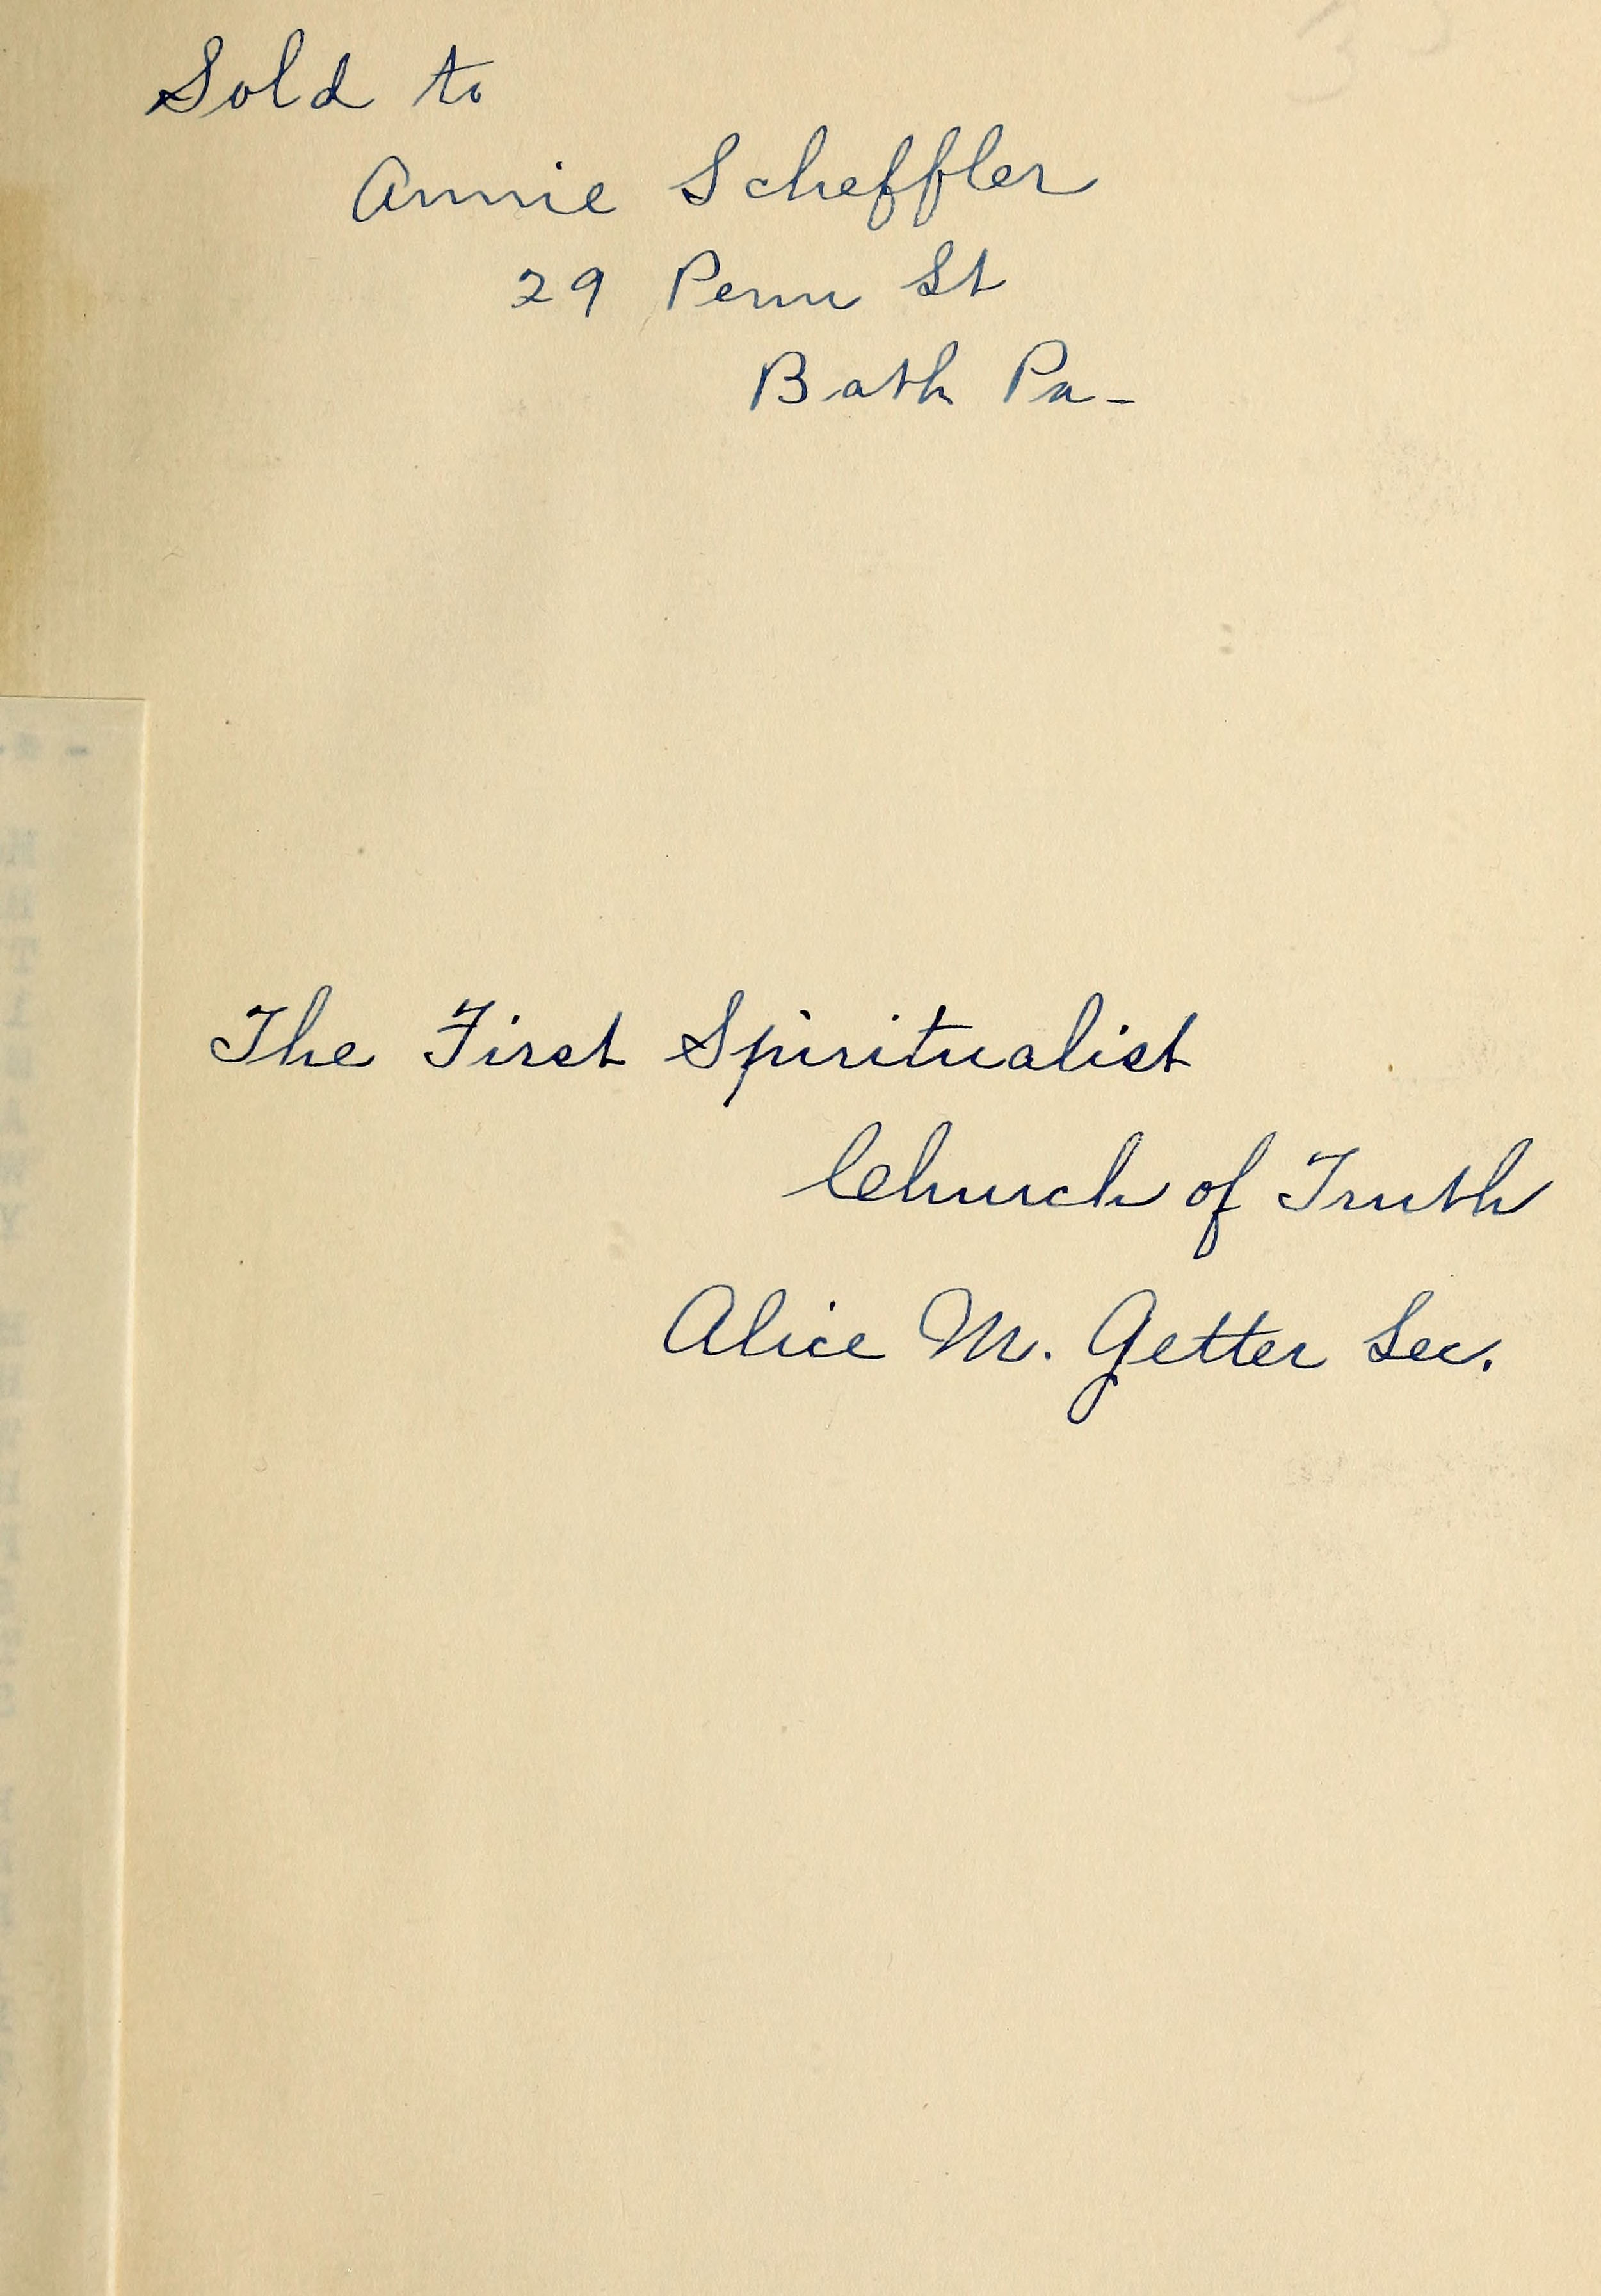 Sold to
Annie Scheffler
29 Penn St
Bath Pa-
The First Spiritualist
Church of Truth
Alice M. Getter Sec.